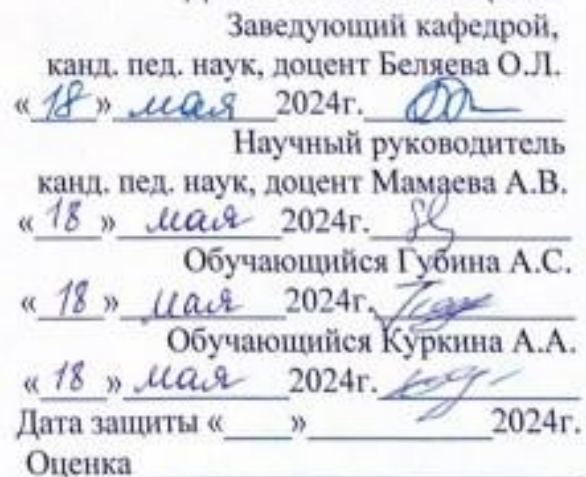 Заведующий кафедрой,
канд. пед. наук, доцент Беляева О.Л.
«18» мая 2024г.
Научный руководитель
канд. пед. наук, доцент Мамаева А.В.
«18» мая 2024г.
Обучающийся Губина А.С.
«18» мая 2024г.
Обучающийся Куркина А.А.
«18» мая 2024г.
Дата защиты «_____»_______________2024г.
Оценка